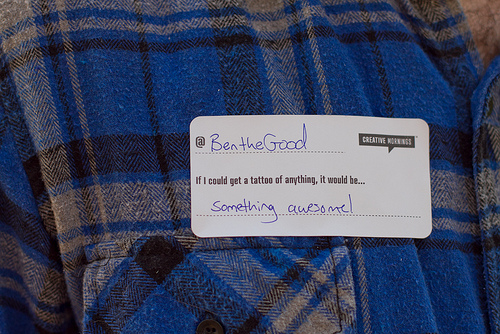 @ BentheGood
CREATIVE MORNINGS
If I could get a tattoo of anything, it would be...
Something awesome!